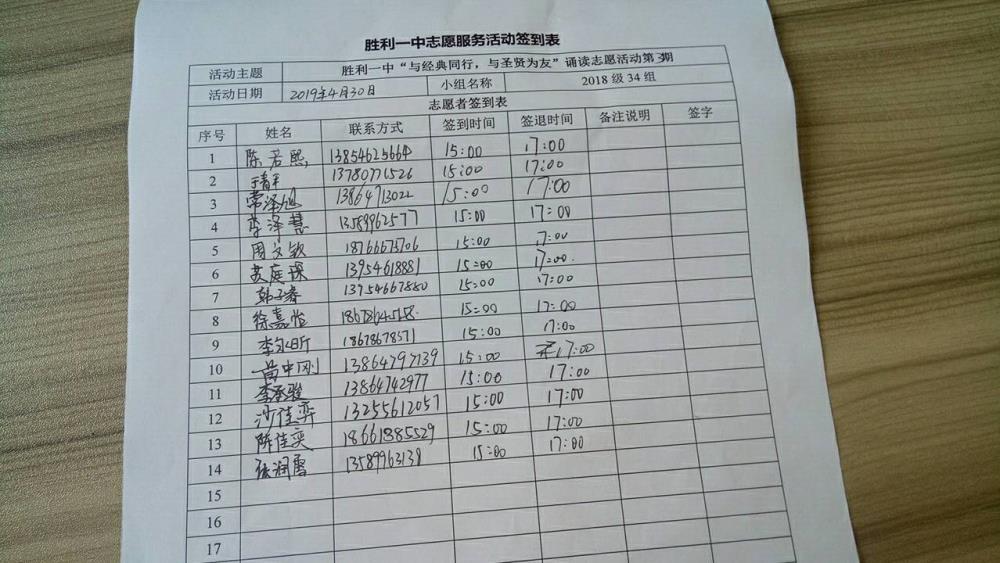 胜利一中志愿服务活动签到表
活动主题 胜利一中“与经典同行，与圣贤为友”诵读志愿活动第3期
活动日期 2019年4月30日 小组名称 2018 级 34 组
志愿者签到表
序号 姓名 联系方式 签到时间 签退时间 备注说明 签字
1 陈若熙 13854625664 15:00 17:00
2 于青平 13780771526 15:00 17:00
3 常泽旭 13864713022 15:00 17:00
4 李泽慧 13589962577 15:00 17:00
5 周文钦 18766673706 15:00 7:00
6 苏庭琛 13954618881 15:00 17:00.
7 韩子春 13754667880 15:00 17:00
8 徐嘉怡 15:00 17:00
9 李永昕 18678678571 15:00 17:00
10 苗中刚 13864797139 15:00 17:00
11 李承骏 13864742977 15:00 17:00
12 沙佳弈 13255612057 15:00 17:00
13 陈佳奕 18661885529 15:00 17:00
14 张润雪 1358996313 15:00 17:00
15
16
17